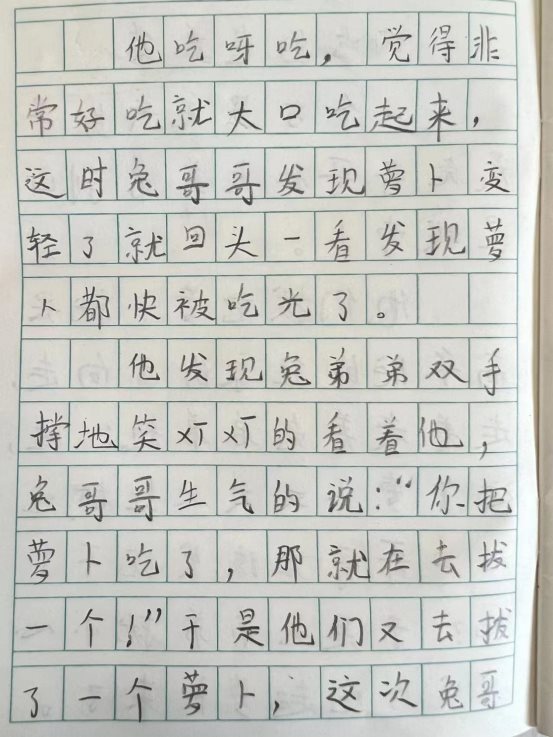 他吃呀吃，觉得非
常好吃就大口吃起来，
这时兔哥哥发现萝卜变
轻了就回头一看发现萝
卜都快被吃光了。
他发现兔弟弟双手
撑地笑灯灯的看着他，
兔哥哥生气的说：“你把
萝卜吃了，那就在去拔
一个！”于是他们又去拔
了一个萝卜，这次兔哥